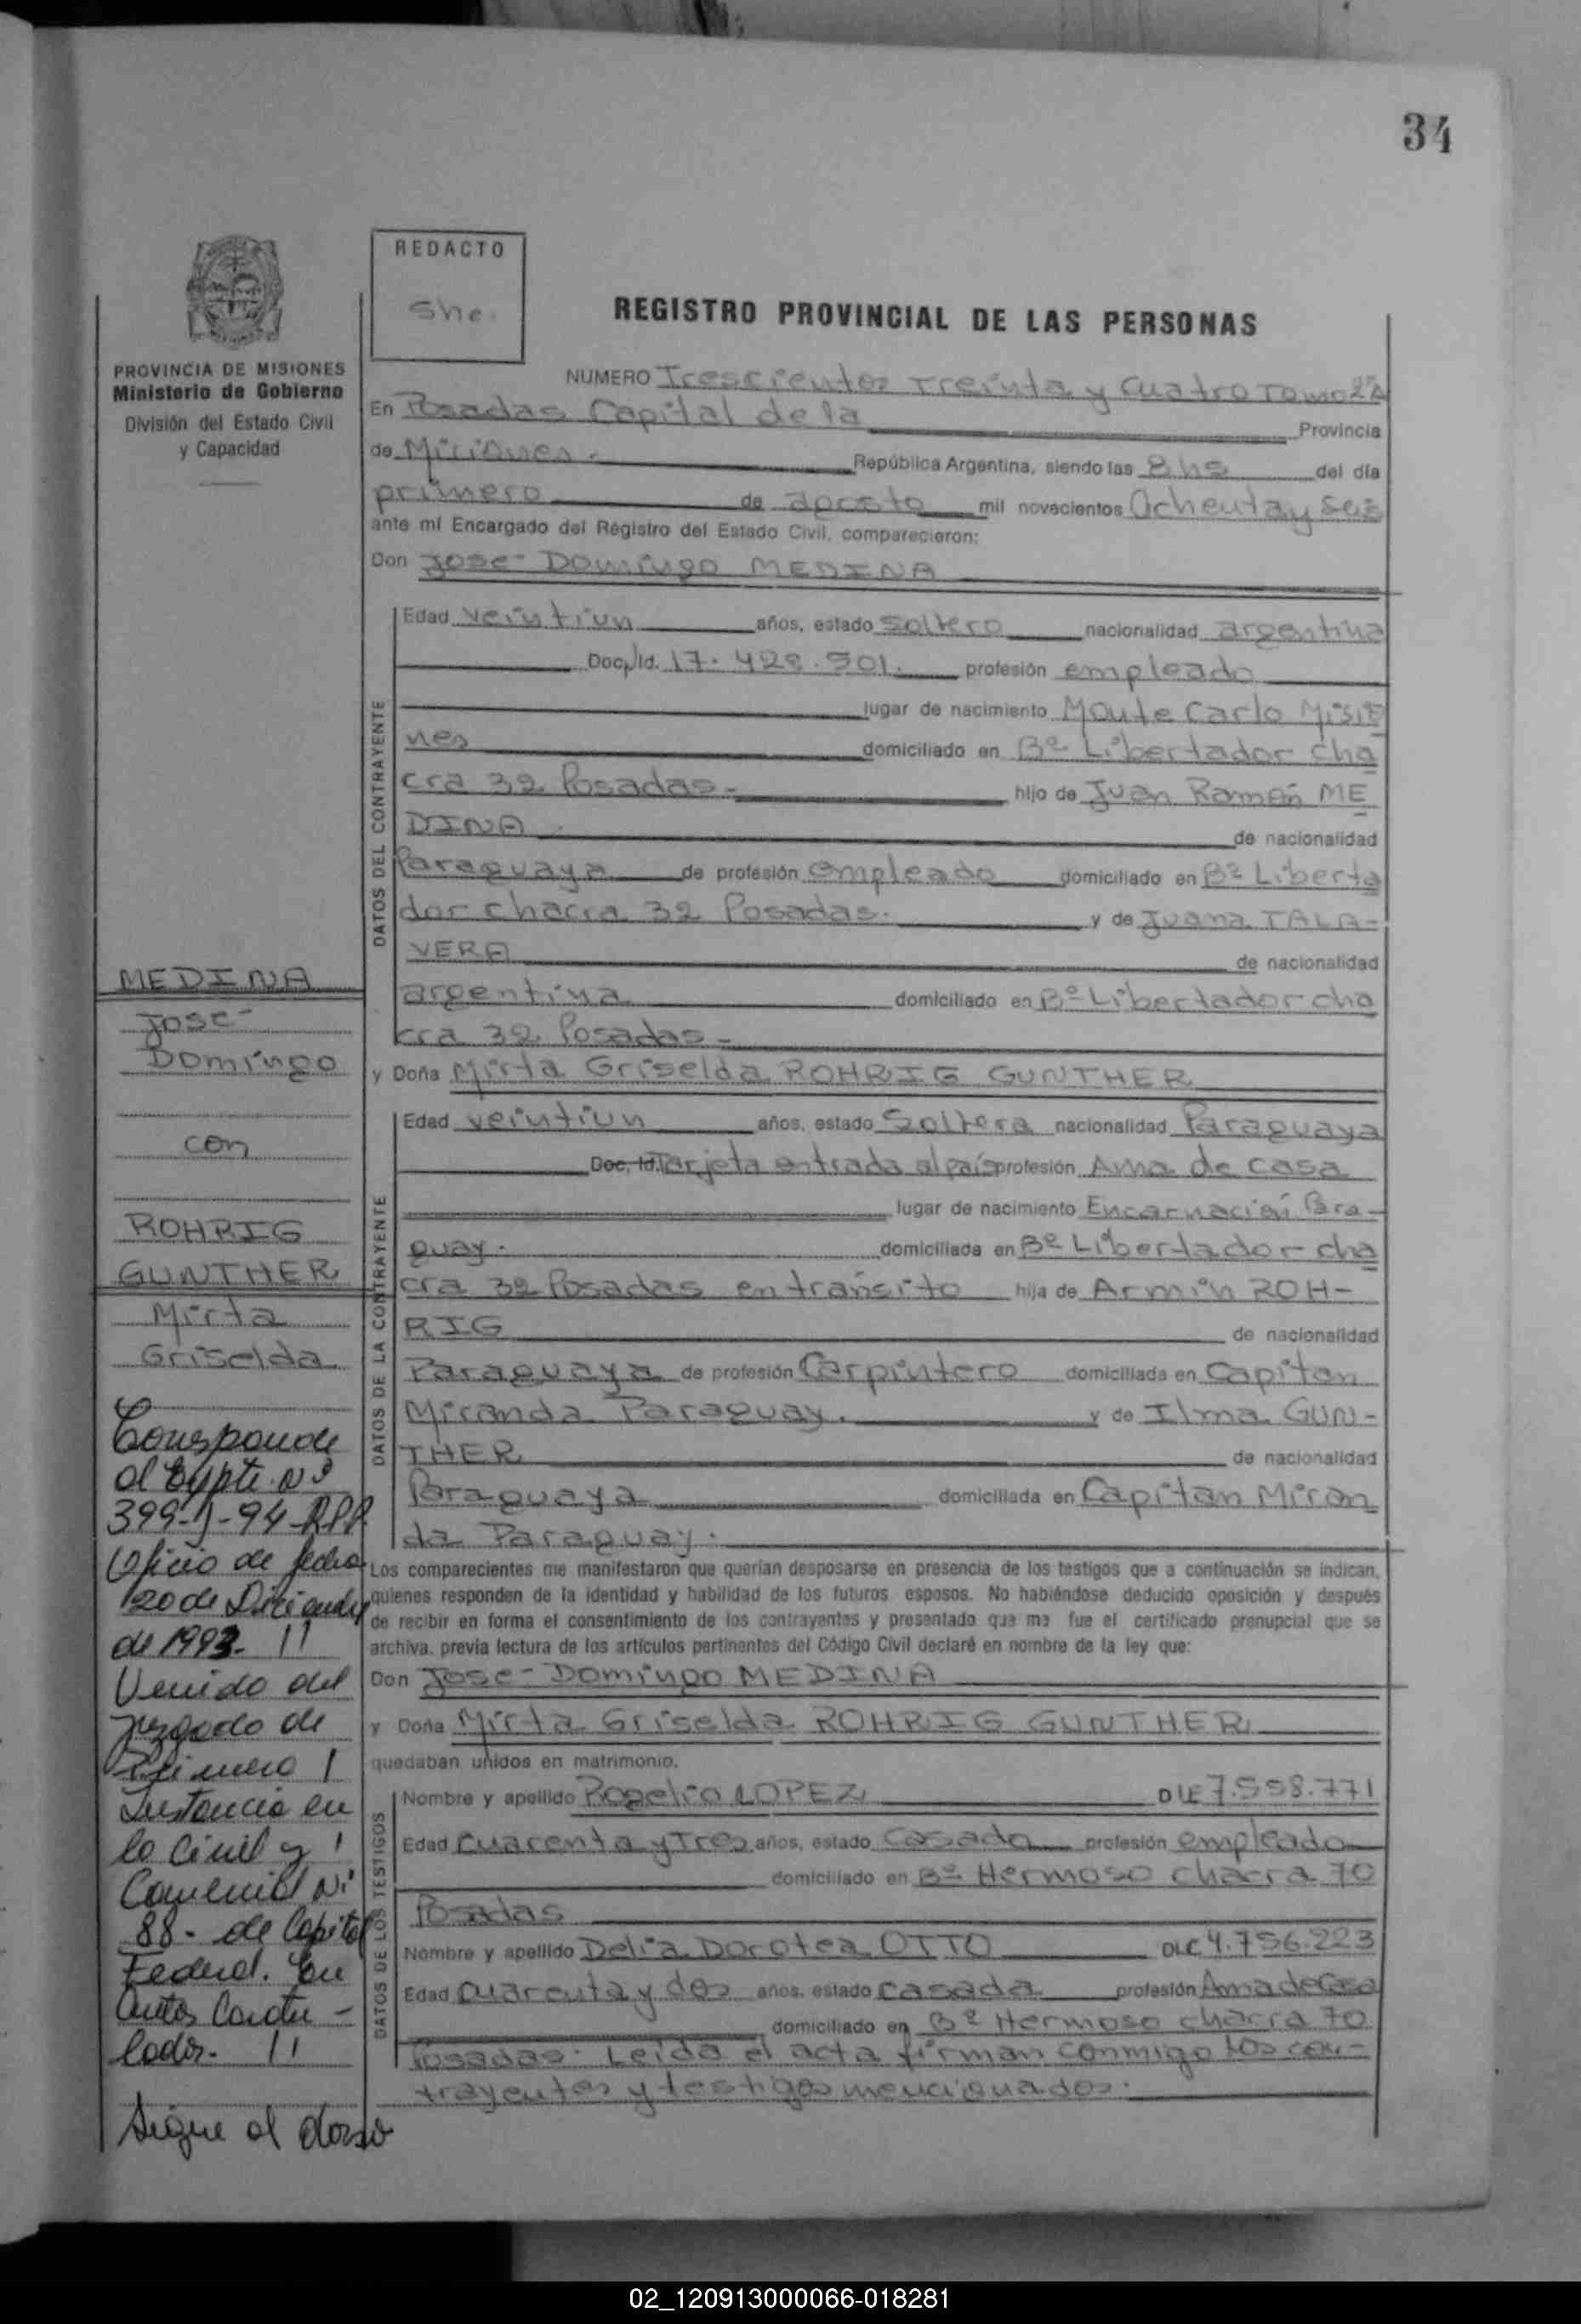 34
REDACTO
She.
REGISTRO PROVINCIAL DE LAS PERSONAS
PROVINCIA DE MISIONES
Ministerio de Gobierno
División del Estado Civil
y Capacidad
NUMERO Trescientos Treinta y Cuatro Tomo 2ºA
En Posadas Capital de la Provincia
de Misiones. República Argentina, siendo las 8 hs del día
primero de agosto mil novecientos Ochenta y Seis
ante mí Encargado del Registro del Estado Civil, comparecieron:
Don José Domingo MEDINA
DATOS DEL CONTRAYENTE
Edad veintiun años, estado Soltero nacionalidad argentina
Doc. Id. 17.428.501. profesión empleado
lugar de nacimiento Monte Carlo Misio
nes domiciliado en Bº Libertador cha
cra 32 Posadas.- hijo de Juan Ramón ME
DINA de nacionalidad
Paraguaya de profesión empleado domiciliado en Bº Liberta
dor chacra 32 Posadas. y de Juana TALA-
VERA de nacionalidad
argentina domiciliado en Bº Libertador cha
cra 32 Posadas.-
y Doña Mirta Griselda ROHRIG GUNTHER
DATOS DE LA CONTRAYENTE
Edad veintiun años, estado Soltera nacionalidad Paraguaya
Doc. Id. Tarjeta entrada al país profesión Ama de casa
lugar de nacimiento Encarnación Para-
guay. domiciliada en Bº Libertador cha
cra 32 Posadas en tránsito hija de Armin ROH-
RIG de nacionalidad
Paraguaya de profesión Carpintero domiciliada en Capitan
Miranda Paraguay. y de Ilma GUN-
THER de nacionalidad
Paraguaya domiciliada en Capitan Miran
da Paraguay.
Los comparecientes me manifestaron que querían desposarse en presencia de los testigos que a continuación se indican,
quienes responden de la identidad y habilidad de los futuros esposos. No habiéndose deducido oposición y después
de recibir en forma el consentimiento de los contrayentes y presentado que me fue el certificado prenupcial que se
archiva, previa lectura de los artículos pertinentes del Código Civil declaré en nombre de la ley que:
Don José Domingo MEDINA
y Doña Mirta Griselda ROHRIG GUNTHER
quedaban unidos en matrimonio.
DATOS DE LOS TESTIGOS
Nombre y apellido Rogelio LOPEZ DLE 7.558.771
Edad Cuarenta y Tres años, estado Casado profesión empleado
domiciliado en Bº Hermoso chacra 70
Posadas
Nombre y apellido Delia Dorotea OTTO DLC 4.756.223
Edad Cuarenta y dos años, estado casada profesión Ama de Casa
domiciliado en Bº Hermoso chacra 70
Posadas. Leída el acta firman conmigo los con-
trayentes y testigos mencionados.
MEDINA
José
Domingo
con
ROHRIG
GUNTHER
Mirta
Griselda
Corresponde
al Expte. Nº
399-J-94-RPP
Oficio de fecha
20 de Diciembre
de 1993. //
Venido del
Juzgado de
Primera /
Instancia en
lo Civil y /
Comercial Nº
88- de Capital
Federal. En
Autos Caratu-
lados. //
Sigue al dorso
02_120913000066-018281